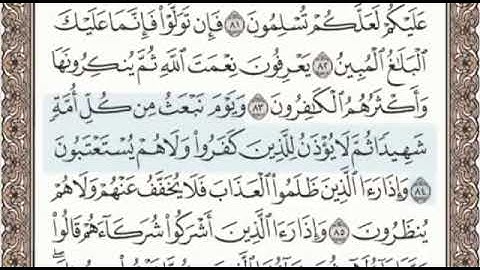 عَلَيْكُمْ لَعَلَّكُمْ تُسْلِمُونَ ٨١ فَإِن تَوَلَّوْا۟ فَإِنَّمَا عَلَيْكَ
ٱلْبَلَٰغُ ٱلْمُبِينُ ٨٢ يَعْرِفُونَ نِعْمَتَ ٱللَّهِ ثُمَّ يُنكِرُونَهَا
وَأَكْثَرُهُمُ ٱلْكَٰفِرُونَ ٨٣ وَيَوْمَ نَبْعَثُ مِن كُلِّ أُمَّةٍ
شَهِيدًا ثُمَّ لَا يُؤْذَنُ لِلَّذِينَ كَفَرُوا۟ وَلَا هُمْ يُسْتَعْتَبُونَ
٨٤ وَإِذَا رَءَا ٱلَّذِينَ ظَلَمُوا۟ ٱلْعَذَابَ فَلَا يُخَفَّفُ عَنْهُمْ وَلَا هُمْ
يُنظَرُونَ ٨٥ وَإِذَا رَءَا ٱلَّذِينَ أَشْرَكُوا۟ شُرَكَآءَهُمْ قَالُوا۟